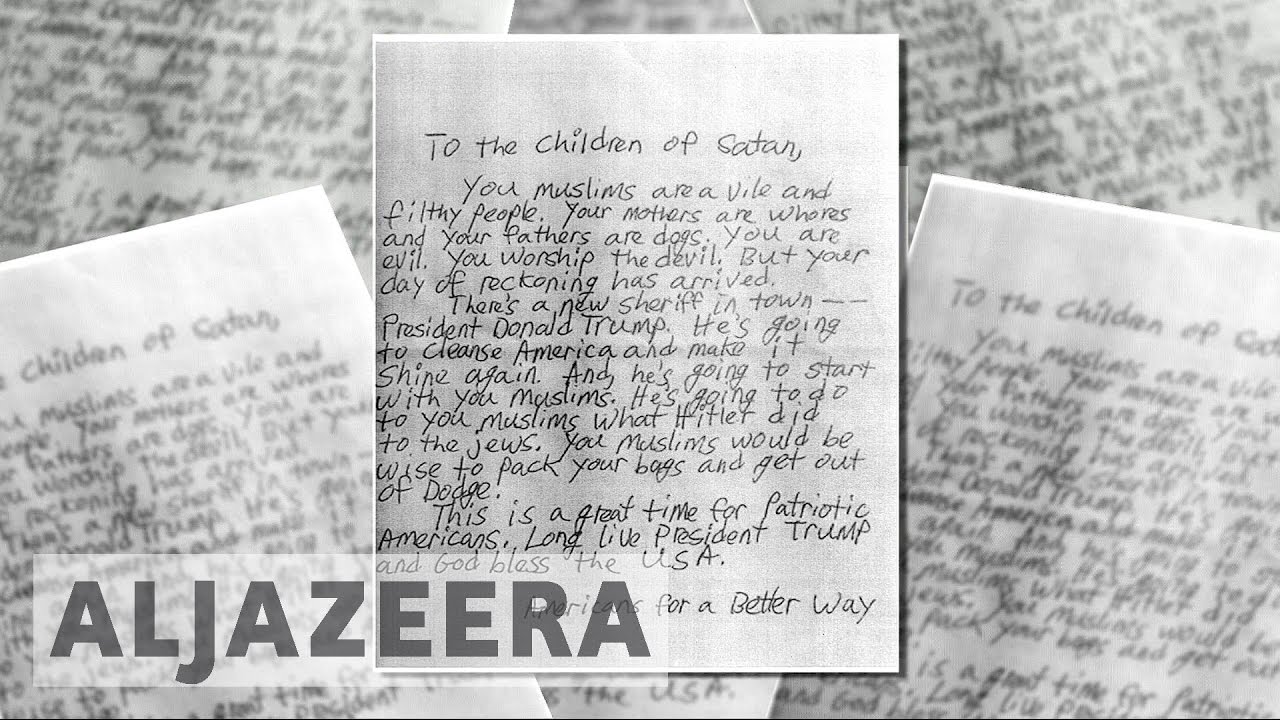 To the Children of Satan,
You muslims are a vile and
filthy people. Your mothers are whores
and your fathers are dogs. You are
evil. You worship the devil. But your
day of reckoning has arrived.
There's a new sheriff in town --
President Donald Trump. He's going
to cleanse America and make it
shine again. And, he's going to start
with you muslims. He's going to do
to you muslims what Hitler did
to the jews. You muslims would be
wise to pack your bags and get out
of Dodge.
This is a great time for Patriotic
Americans. Long live President Trump
and God bless the USA.
Americans for a Better Way
ALJAZEERA